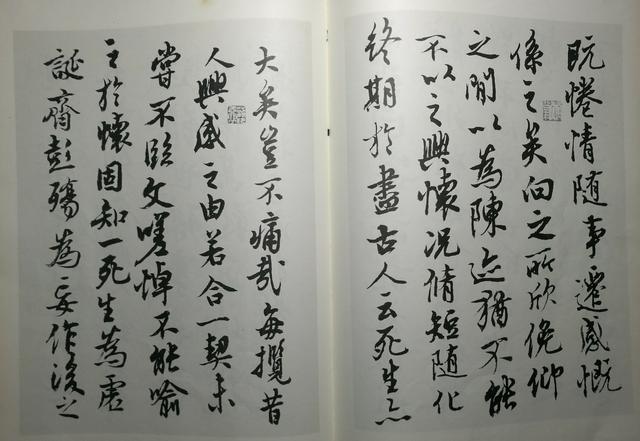 既惓情随事遷感慨
係之矣向之所欣俛仰
之閒以為陳迹猶不能
不以之興懷况脩短随化
終期於盡古人云死生亦
大矣豈不痛哉每攬昔
人興感之由若合一契未
嘗不臨文嗟悼不能喻
之於懷固知一死生為虛
誕齊彭殤為妄作後之